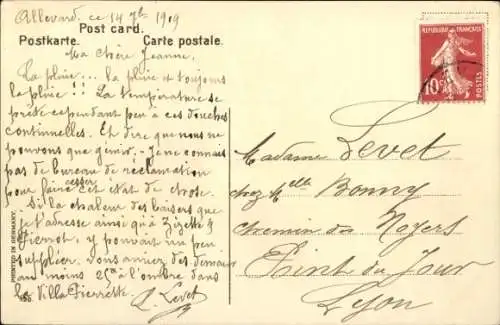 Allevard, ce 14 7bre 1909
Post card.
Postkarte. Carte postale.
Ma chère Jeanne,
La pluie... la pluie et toujours
la pluie !! La température se
prête cependant peu à ces douches
continuelles. Et dire que nous ne
pouvons que gémir, - je ne connais
pas de bureau de réclamation
pour faire cesser cet état de chose.
Si la chaleur des baisers que
je t'adresse ainsi qu'à Zizette &
Pierrot, y pouvait un peu
suppléer, vous auriez dès demain
au moins 25° à l'ombre dans
la Villa Pierrette
L. Levet
PRINTED IN GERMANY.
REPUBLIQUE FRANÇAISE
10c
POSTES
Madame Levet
chez Melle Bonny
Chemin des Noyers
Point du Jour
Lyon